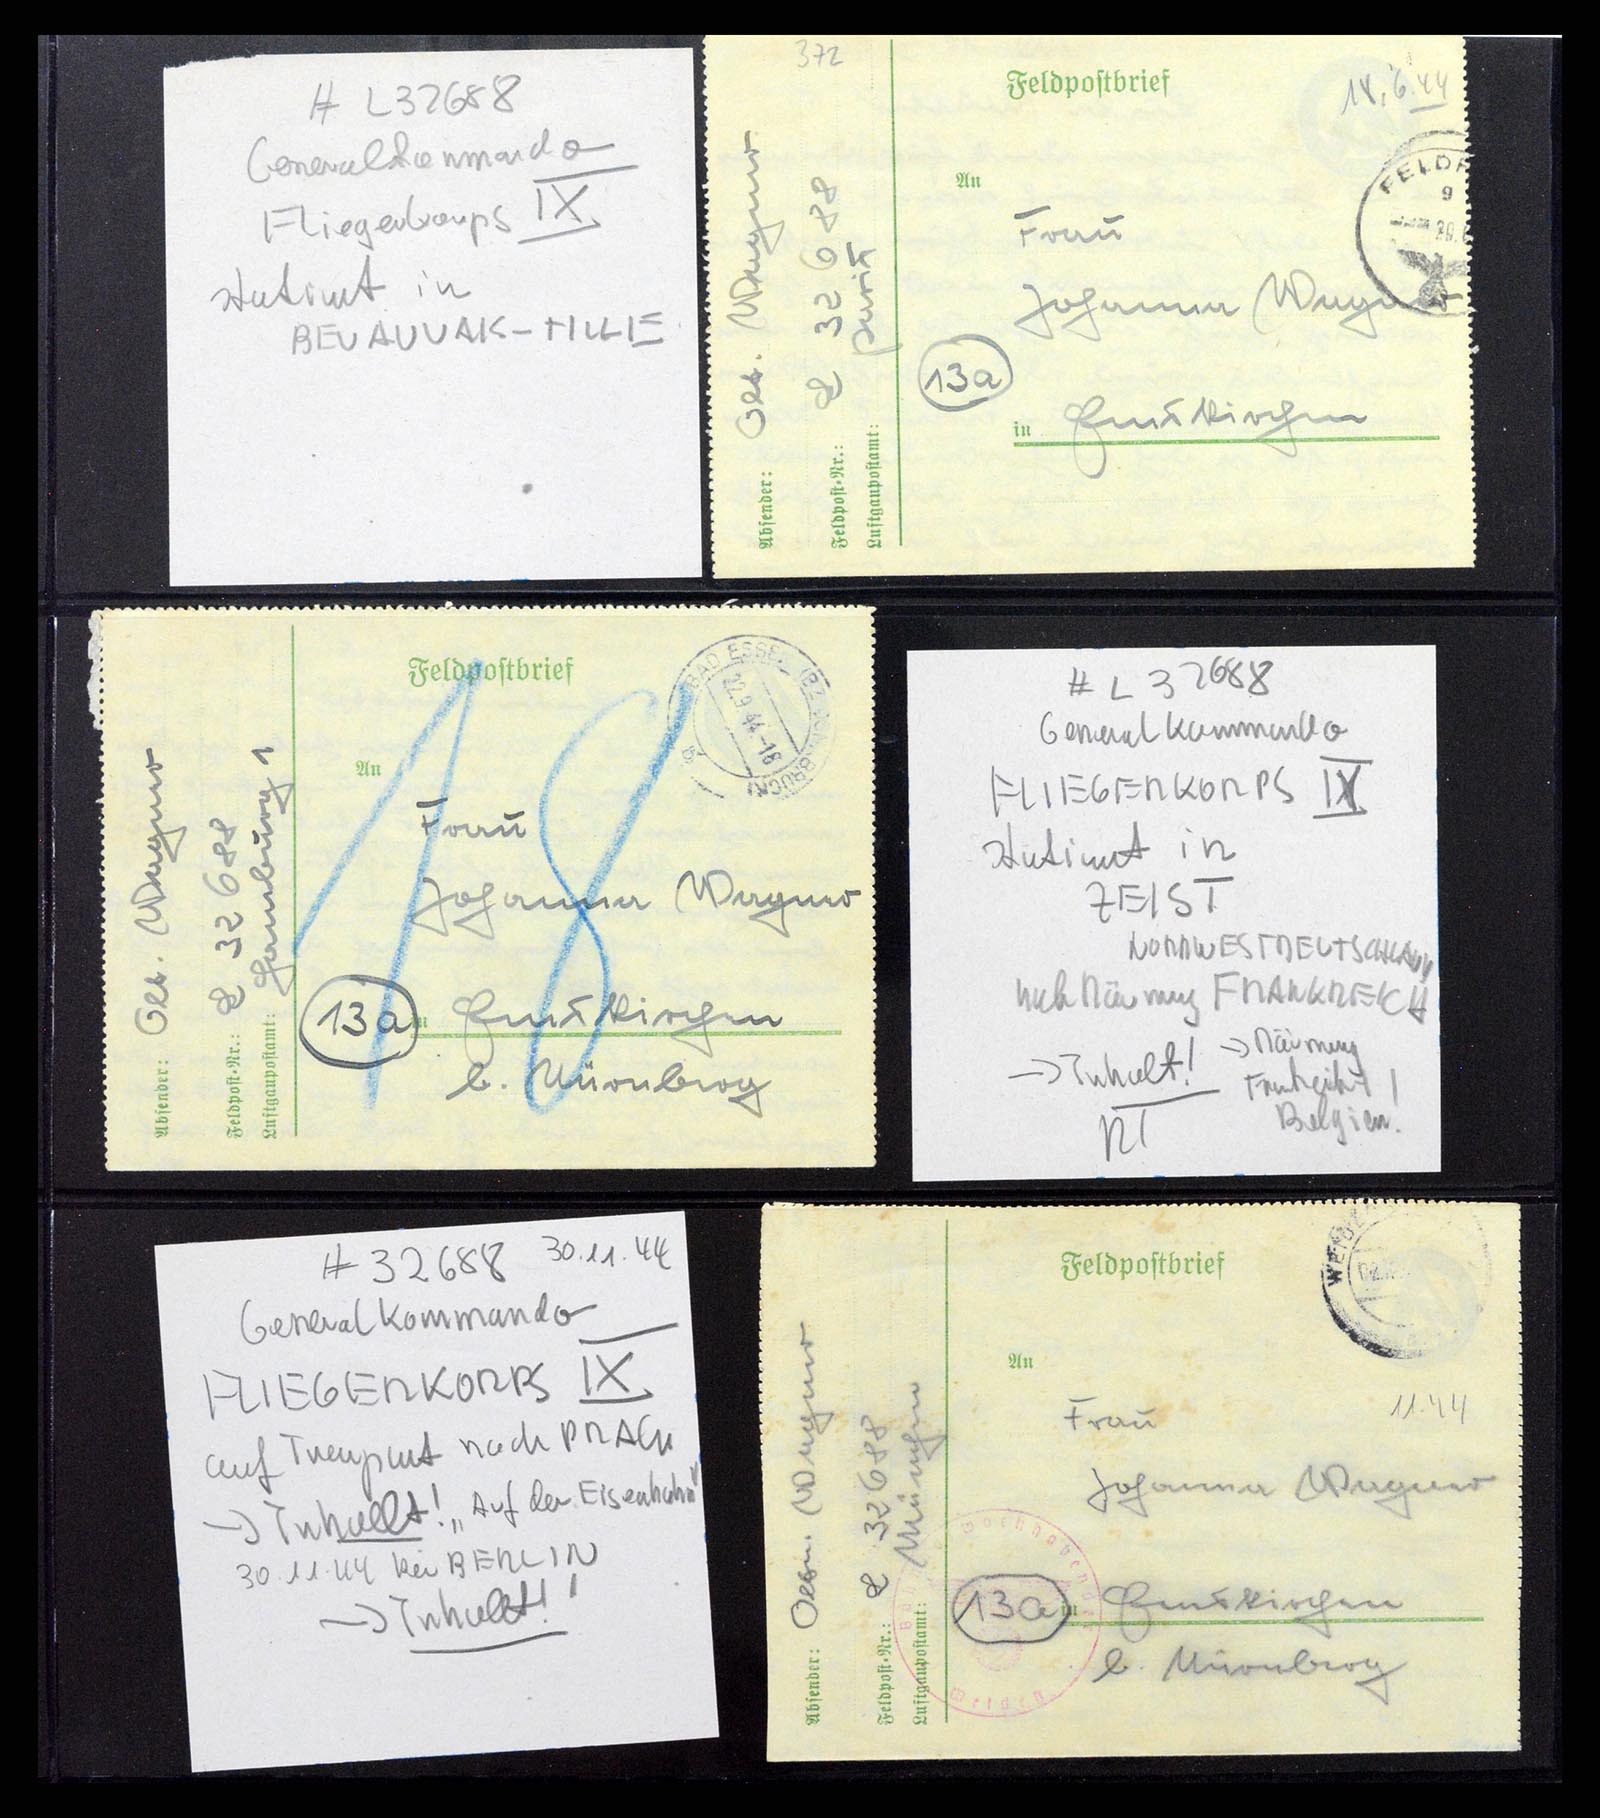 # L32688
Generalkommando
Fliegerkorps IX
stationt in
BEUAUVAIS-TILLE
372
Feldpostbrief
18.6.44
FELDP
An
Frau
Johanna Wagner
13a
in Emskirchen
Absender: Obt. Wagner
Feldpost-Nr.: L 32688
Luftgaupostamt: Paris
Feldpostbrief
BAD ESSEN (BZ OSNABRÜCK)
22.9.44-18
An
18
Frau
Johanna Wagner
13a
in Emskirchen
b. Nürnberg
Absender: Obt. Wagner
Feldpost-Nr.: L 32688
Luftgaupostamt: Hamburg 1
# L 32688
Generalkommando
FLIEGERKORPS IX
stationt in
ZEIST
NORDWESTDEUTSCHLAND
nach Räumung FRANKREICH
→ Inhalt!
→ Räumung
Frankreich /
Belgien.
RT
# 32688 30.11.44
Generalkommando
FLIEGERKORPS IX
auf Transport nach PRAG
→ Inhalt! „Auf der Eisenbahn"
30.11.44 bei BERLIN
→ Inhalt!
Feldpostbrief
WEIDEN
An
11.44
Frau
Johanna Wagner
13a
in Emskirchen
b. Nürnberg
Absender: Wagner
Feldpost-Nr.: L 32688
Luftgaupostamt: München
Weiden